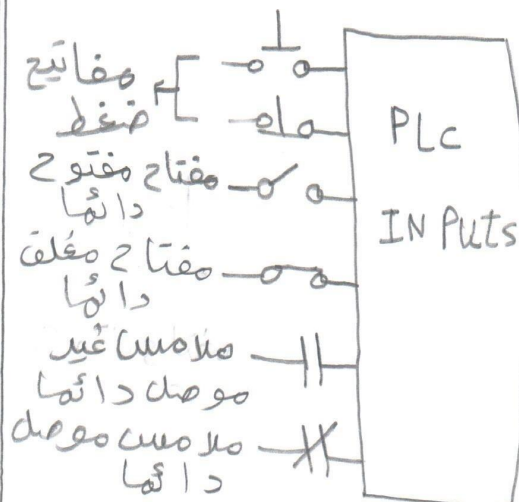 مفاتيح
ضغط
مفتاح مفتوح
دائما
مفتاح مغلق
دائما
ملامس غير
موصل دائما
ملامس موصل
دائما
PLC
INPUTS